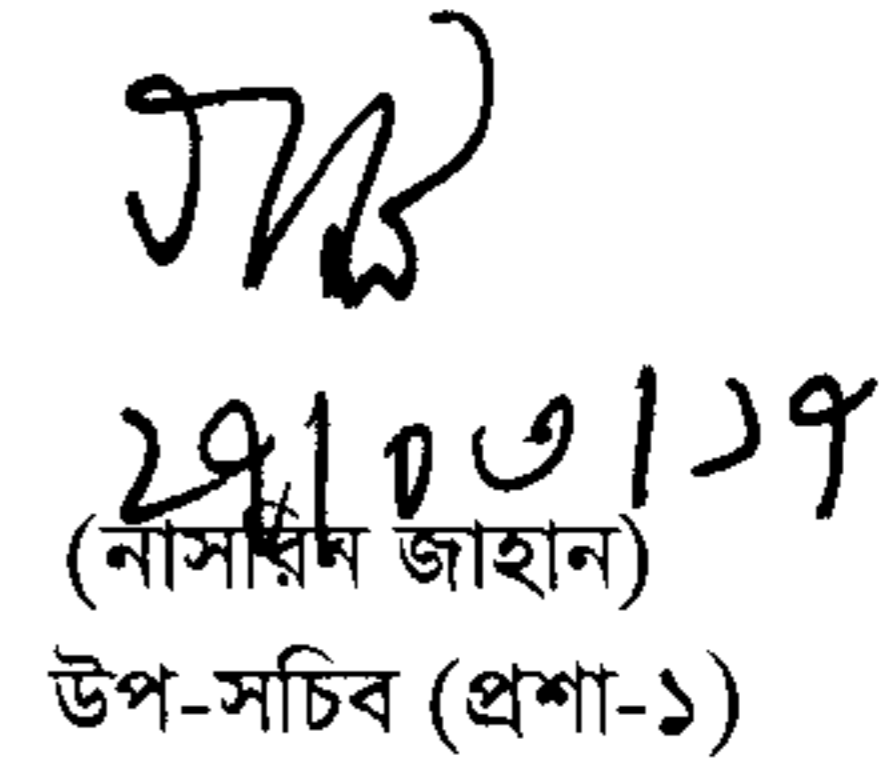 ২৭।০৩।১৭
(নাসরিন জাহান)
উপ-সচিব (প্রশা-১)